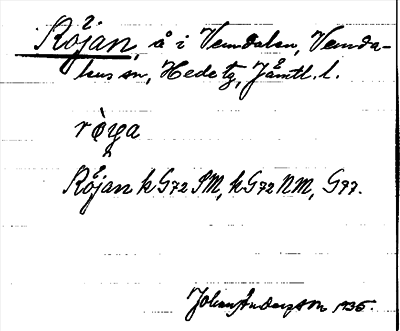 Röjån, å i Vemdalen, Vemda-
lens sn, Hede tg, Jämtl. l.
Röjån k G72 SM, k G72 NM, G77.
Johan Anderson 1935.